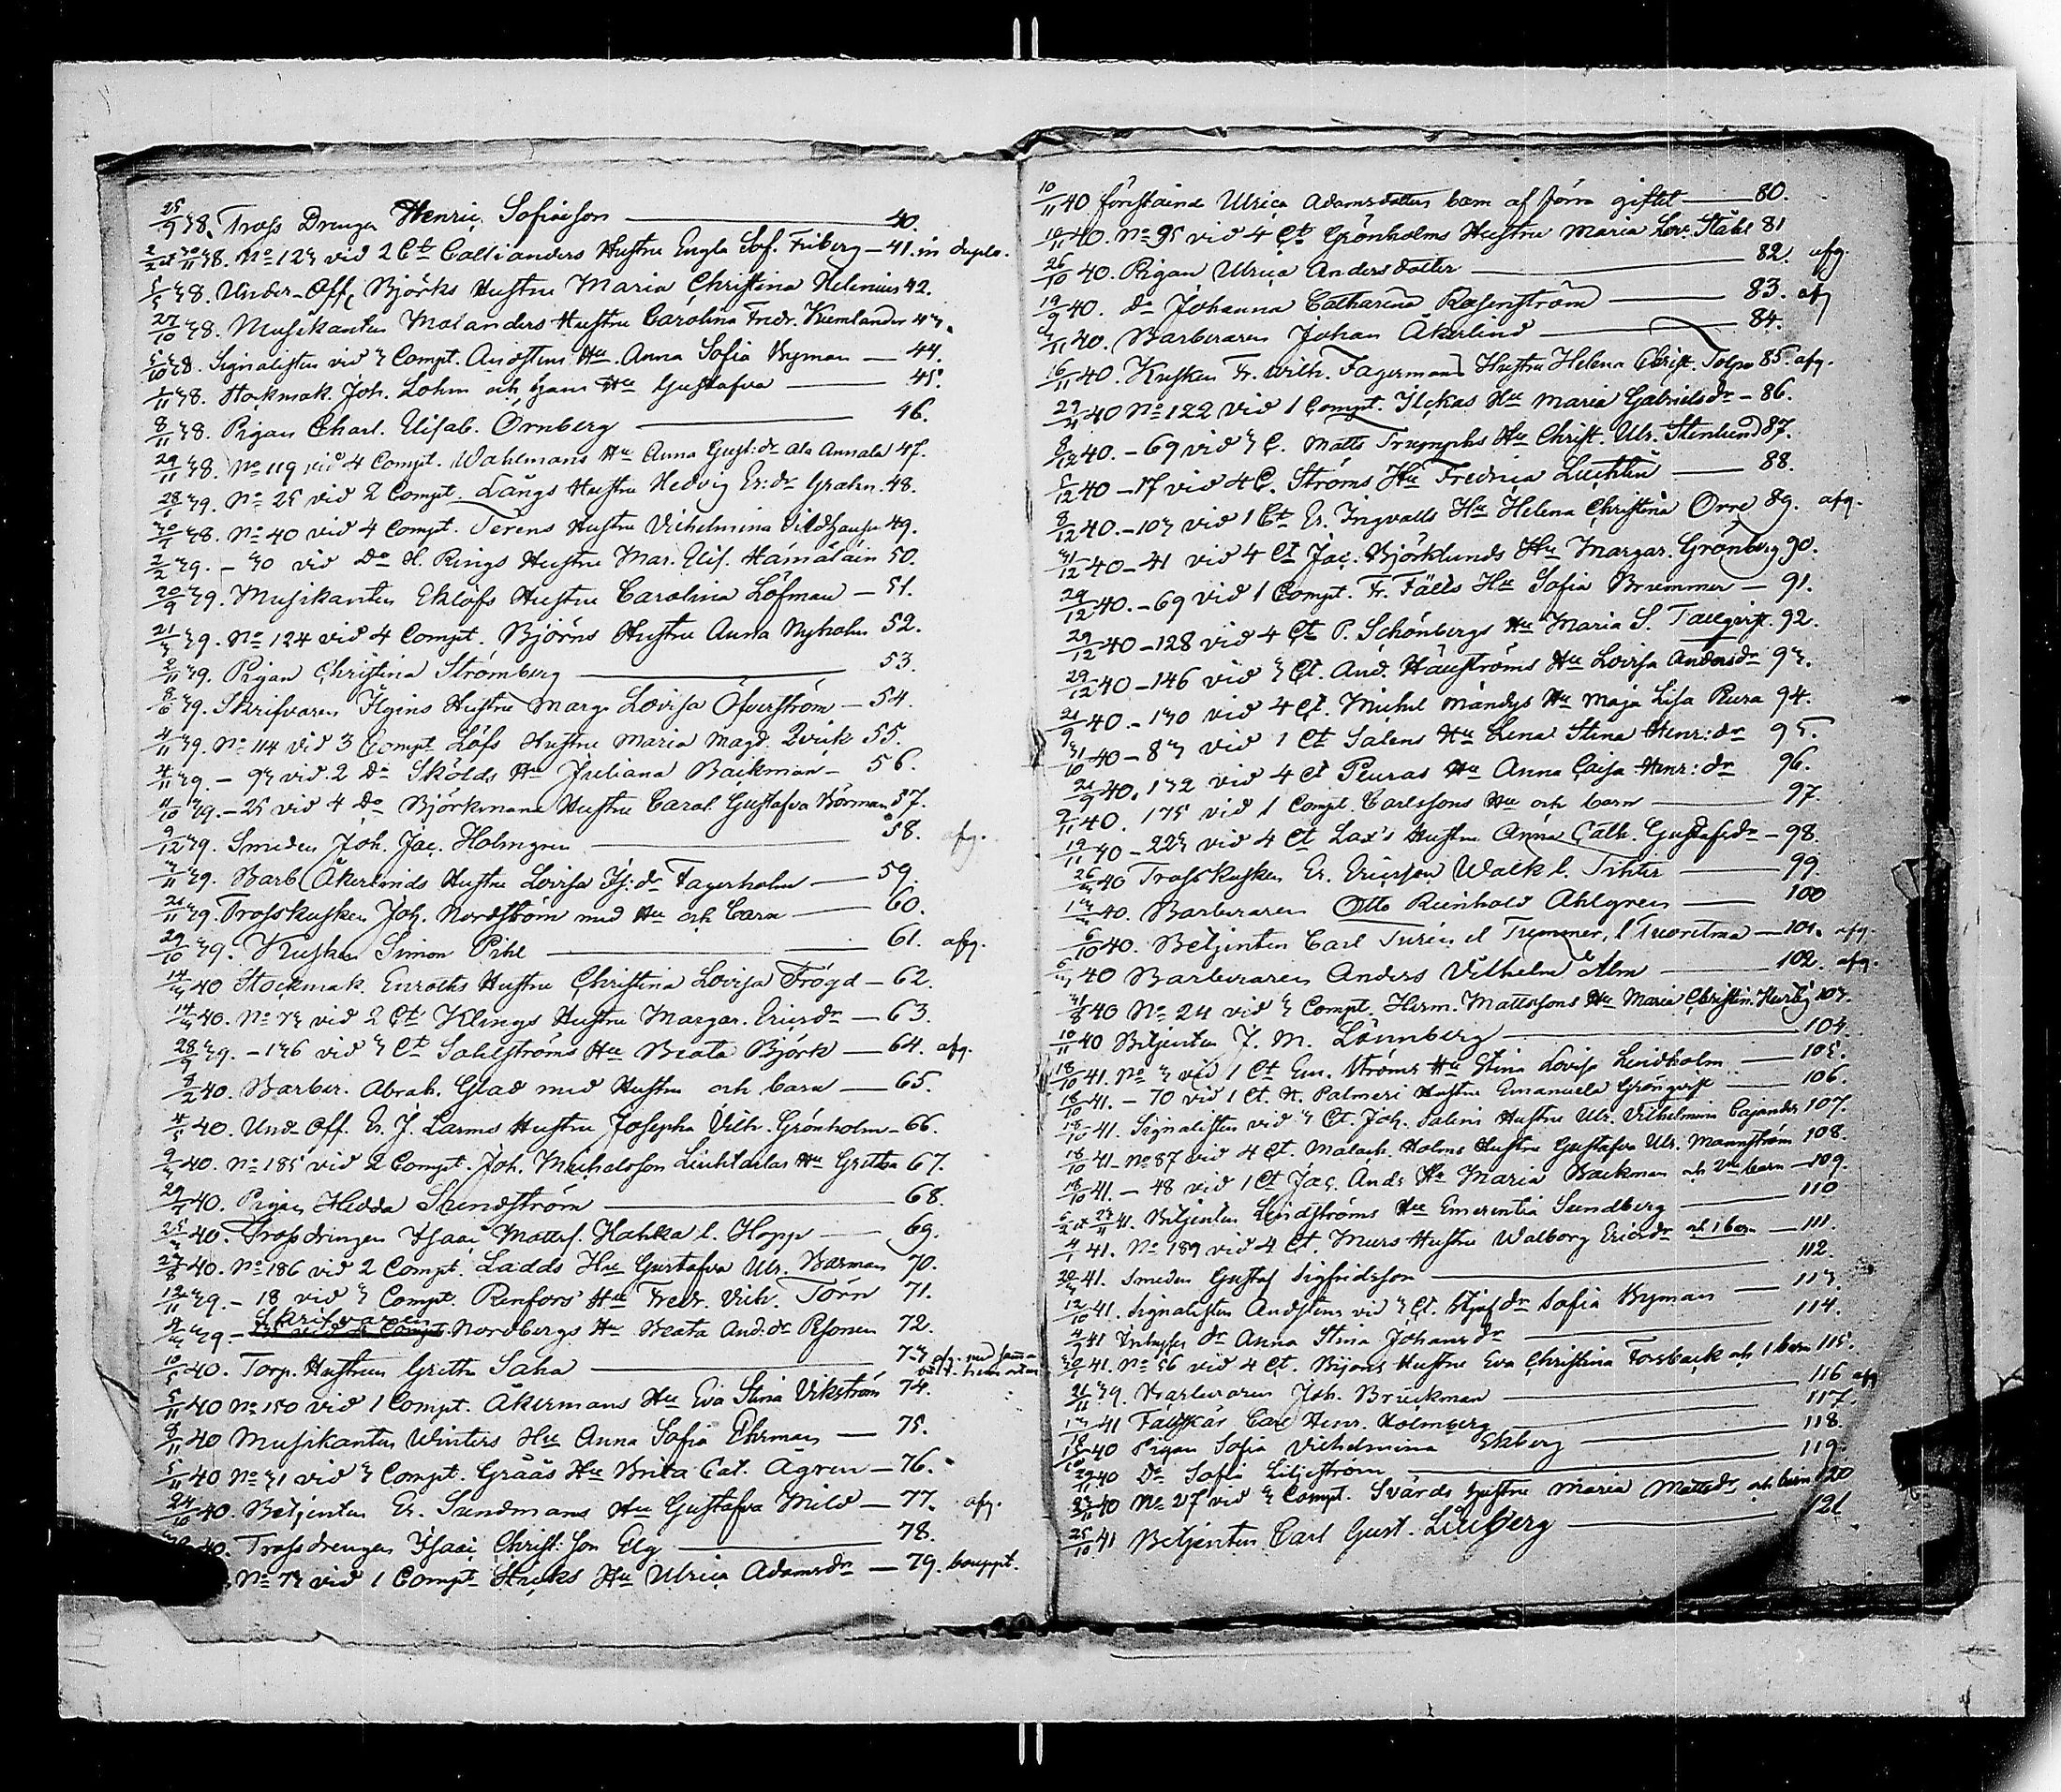 25/9 38. Tross Drengen Henric Sofiæson — 40.
2/2 et 30/11 38. No 123 vid 2 Ct Callianders Hustru Engla Sof. Friberg — 41. in duplo.
5/5 38. Under-Off. Björks Hustru Maria Christina Helenius 42.
27/10 38. Musikanten Molanders Hustru Carolina Fredr. Kumlander 43.
5/10 38. Signalisten vid 3 Compt. Anosténs Hu Anna Sofia Nyman — 44.
1/11 38. Stockmak. Joh. Lohm och hans Hu Gustafva — 45.
8/11 38. Pigan Charl. Elisab. Örnberg — 46.
29/11 38. No 119 vid 4 Compt. Wahlmans Hu Anna Gust:dr ala Annala 47.
28/1 39. No 25 vid 2 Compt. Långs Hustru Hedvig Er:dr Grahn. 48.
38. No 40 vid 4 Compt. Terens Hustru Vilhelmina 49.
2/2 39. – 30 vid Do H. Rings Hustru Mar. Elis. Hämäläin 50.
20/9 39. Musikanten Eklöfs Hustru Carolina Löfman — 51.
21/3 39. No 124 vid 4 Compt. Björns Hustru Anna Nyholm 52.
2/11 39. Pigan Christina Strömberg — 53.
8/6 39. Skrifvaren Ilgins Hustru Marg. Lovisa Öfverström — 54.
4/11 39. No 114 vid 3 Compt. Löfs Hustru Maria Magd. Qvick 55.
4/11 39. – 93 vid 2 Do Skölds Hu Juliana Backman — 56.
11/10 39. – 25 vid 4 Do Björkmans Hustru Carol. Gustafva Börman 57.
9/12 39. Smeden Joh. Jac. Holmgren — 58. afg.
3/11 39. Barb. Åkerlinds Hustru Lovisa Is:dr Fagerholm — 59.
21/11 39. Trosskusken Joh. Nordström med Hu och barn — 60.
29/10 39. Kusken Simon Pihl — 61. afg.
14/3 40 Stockmak. Enroths Hustru Christina Lovisa Frögd — 62.
14/3 40. No 73 vid 2 Ct Klings Hustru Margar. Ericsdr — 63.
28/9 39. – 136 vid 3 Ct Sahlströms Hu Beata Björk — 64. afg.
8/2 40. Barber. Abrah. Glad med Hustru och barn — 65.
4/5 40. Und. Off. Er. J. Larms Hustru Josepha Vilh. Grönholm — 66.
9/3 40. No 185 vid 2 Compt. Joh. Michelsson Hu Gretha 67.
29/3 40. Pigan Hedda Sundström — 68.
25/3 40. Trossdrengen Isaac Mattsf. Kahka l. Hopp — 69.
27/8 40. No 186 vid 2 Compt. Ladds Hu Gustafva Ulr. Barman 70.
12/11 39. – 18 vid 3 Compt. Renfors' Hu Fredr. Vilh. Törn 71.
4/3 39 – Skrifvaren Nordbergs Hu Beata And:dr Pesonen 72.
10/5 40. Torp. Hustrun Gretha Saha — 73. afg.
5/11 40 No 150 vid 1 Compt. Åkermans Hu Eva Stina Vikström 74.
8/11 40 Musikanten Winters Hu Anna Sofia Ehrman — 75.
5/11 40 No 31 vid 3 Compt. Gråås Hu Brita Cat. Ågren — 76.
24/10 40. Betjenten Er. Sundmans Hu Gustafva Mild — 77. afg.
40. Trossdrengen Isaac Christ:son Elg — 78.
No 73 vid 1 Compt. Starks Hu Ulrica Adamsdr — 79. bouppt.
10/11 40 förstainde Ulrica Adamsdotters barn af förra giftet — 80.
10/11 40. No 95 vid 4 Ct Grönholms Hustru Maria Lov. Ståhl 81
26/10 40. Pigan Ulrica Andersdotter — 82. afg.
19/9 40. do Johanna Catharina Rosenström — 83. afg
3/11 40. Barberaren Johan Åkerlind — 84.
16/11 40. Kusken Fr. Wilh. Fagermans Hustru Helena Christ. Tolpo 85. afg.
29/11 40 No 122 vid 1 Compt. Ilckas Hu Maria Gabrielsdr — 86.
8/12 40. – 69 vid 3 C. Matts Trumphs Hu Christ. Ulr. Stenlund 87.
5/12 40 – 17 vid 4 C. Ströms Hu Fredrica Luchtin — 88.
8/12 40. – 103 vid 1 Ct Er. Ingvalls Hu Helena Christina Orre 89. afg.
31/12 40 – 41 vid 4 Ct Jac. Björklunds Hu Margar. Grönberg 90.
29/12 40. – 69 vid 1 Compt. Fr. Fälts Hu Sofia Brummer — 91.
29/12 40 – 128 vid 4 Ct P. Schönbergs Hu Maria S. Tallqvist. 92.
29/12 40 – 146 vid 3 Ct. And. Hällströms Hu Lovisa Andersdr 93.
21/9 40. – 130 vid 4 Ct. Michel Mändys Hu Maja Lisa Pura 94.
31/10 40 – 83 vid 1 Ct Salens Hu Lena Stina Henr:dr 95.
21/9 40. 132 vid 4 Ct Peuras Hu Anna Caisa Henr:dr 96.
2/11 40. 175 vid 1 Compt. Carlssons Hu och barn — 97.
19/11 40 – 223 vid 4 Ct Lax's Hustru Anna Cath. Gustafsdr — 98.
26/3 40 Trosskusken Er. Ericsson Walk l. Tihter — 99
13/3 40. Barberaren Otto Reinhold Ahlgren — 100
6/10 40. Betjenten Carl Turén el Trummer, l Tuoretma — 101. afg.
6/3 40 Barberaren Anders Vilhelm Alm — 102. afg.
31/8 40 No 24 vid 3 Compt. Herm. Mattssons Hu Maria Christin. Hurtig 103.
10/11 40 Betjenten J. M. Lönnberg — 104.
18/10 41. No 3 vid 1 Ct Em. Ströms Hu Stina Lovisa Lindholm — 105.
18/10 41. – 70 vid 1 Ct. H. Palmeri Hustru Emanuela Grönqvist — 106.
18/10 41. Signalisten vid 3 Ct. Joh. Salens Hustru Ulr. Vilhelmina Cajander 107.
18/10 41 – No 87 vid 4 Ct. Malach. Holms Hustru Gustafva Ulr. Mannström 108.
18/10 41. – 48 vid 1 Ct Jac. Ands Hu Maria Backman och 2ne barn — 109.
6/2 et 23/11 41. Betjenten Lindströms Hu Emerentia Sundberg — 110
4/1 41. No 189 vid 4 Ct. Murs Hustru Walborg Ericsdr och 1 barn — 111.
20/3 41. Smeden Gustaf Sigfridsson — 112.
12/10 41. Signalisten Andsténs vid 3 Ct. Styfdr Sofia Nyman — 113.
4/9 41 dr Anna Stina Johansdr — 114.
41. No 56 vid 4 Ct. Bijons Hustru Eva Christina Forsback och 1 barn 115.
21/11 39. Barberaren Joh. Bruckman — 116 afg
41 Fältskär Carl Henr. Holmberg — 117.
40 Pigan Sofia Vilhelmina Ekberg — 118.
29/11 40 Do Sofia Liljeström — 119.
23/11 40 No 27 vid 3 Compt. Svärds Hustru Maria Mattsdr och barn 120
25/10 41 Betjenten Carl Gust. Liljeberg — 121